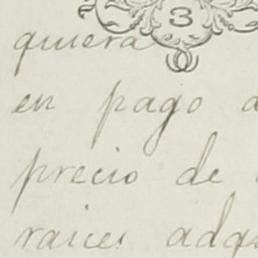 3
quiera
en pago
precio de
raices